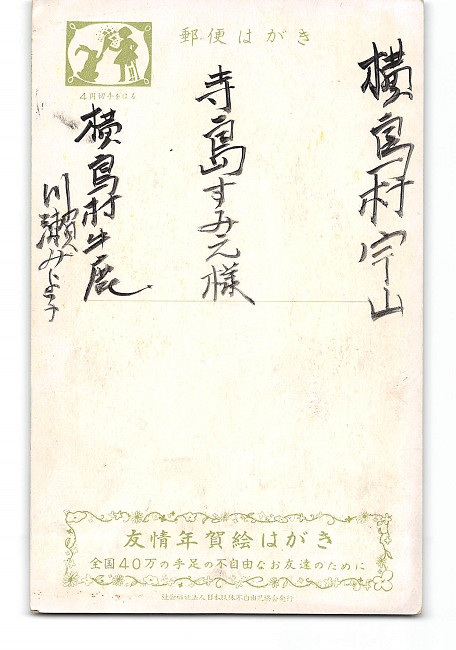 郵便はがき
4円切手をはる
横島村宇山
寺島すみえ様
横島村半鹿
川瀬みよ子
友情年賀絵はがき
全国40万の手足の不自由なお友達のために
社会福祉法人日本肢体不自由児協会発行